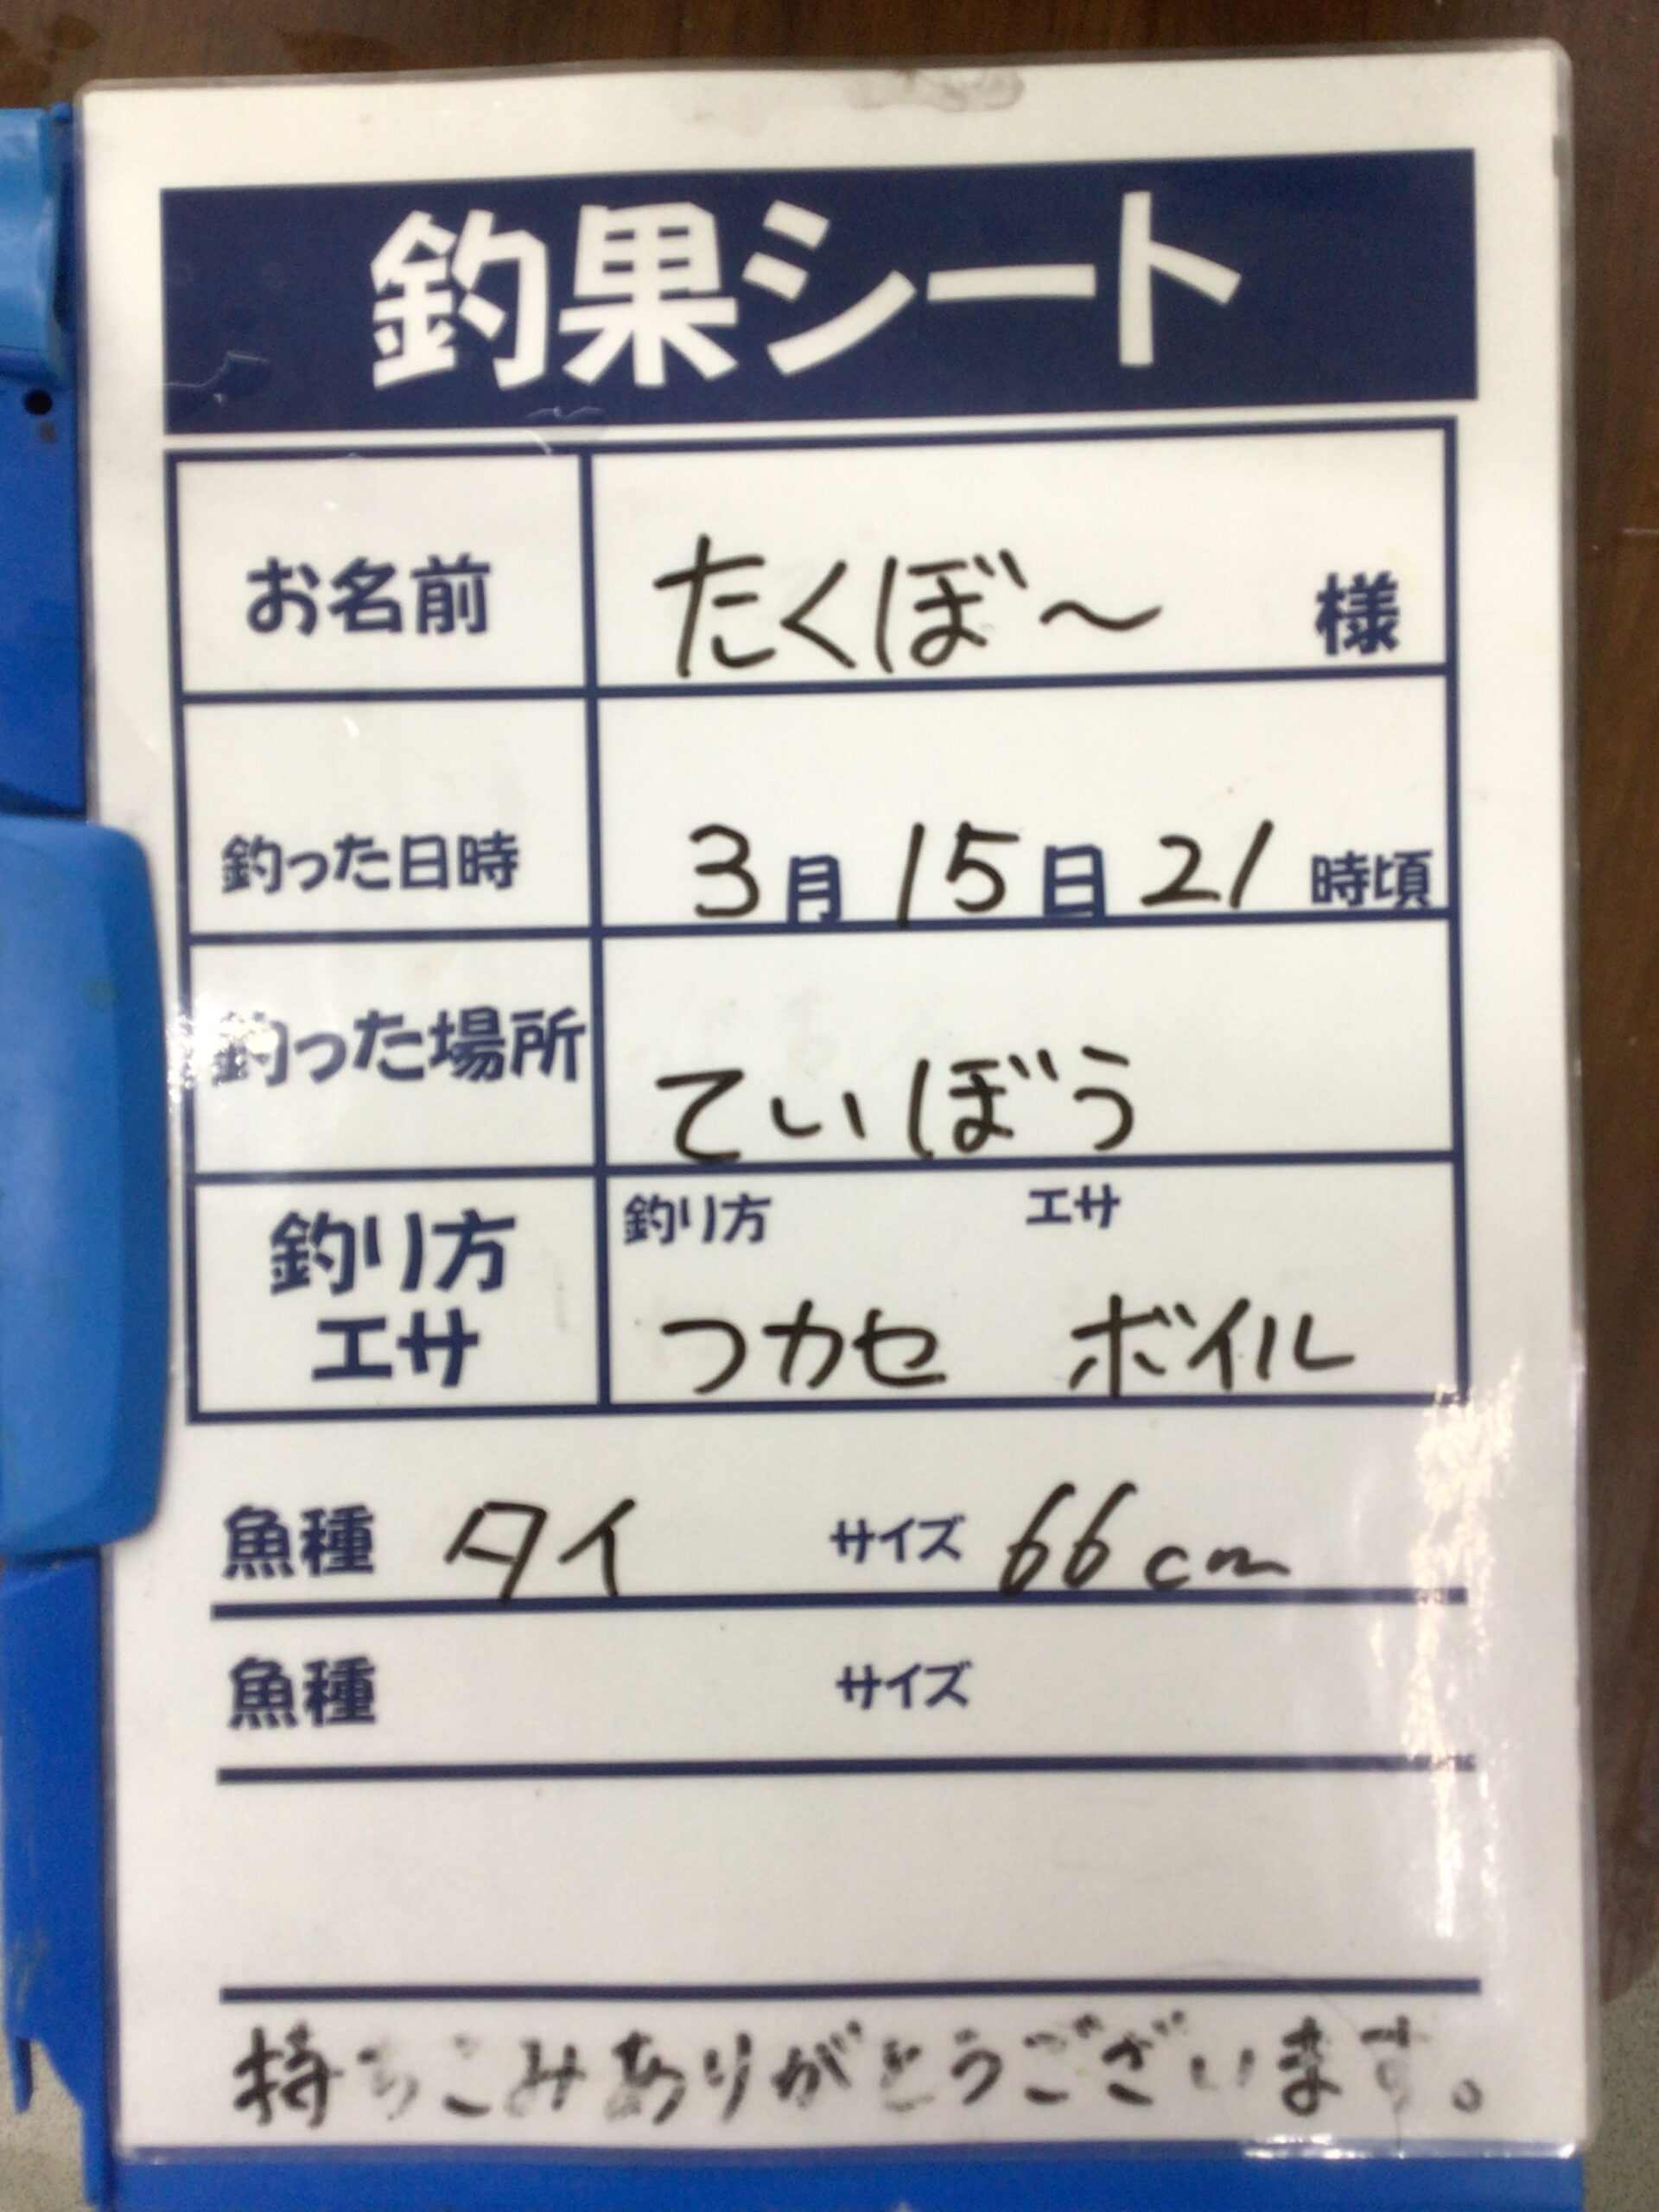 釣果シート
お名前 たくぼ〜 様
釣った日時 3月15日21時頃
釣った場所 ていぼう
釣り方 エサ
釣り方
エサ
つカセ ボイル
魚種 タイ サイズ 66cm
魚種 サイズ
持ちこみありがとうございます。